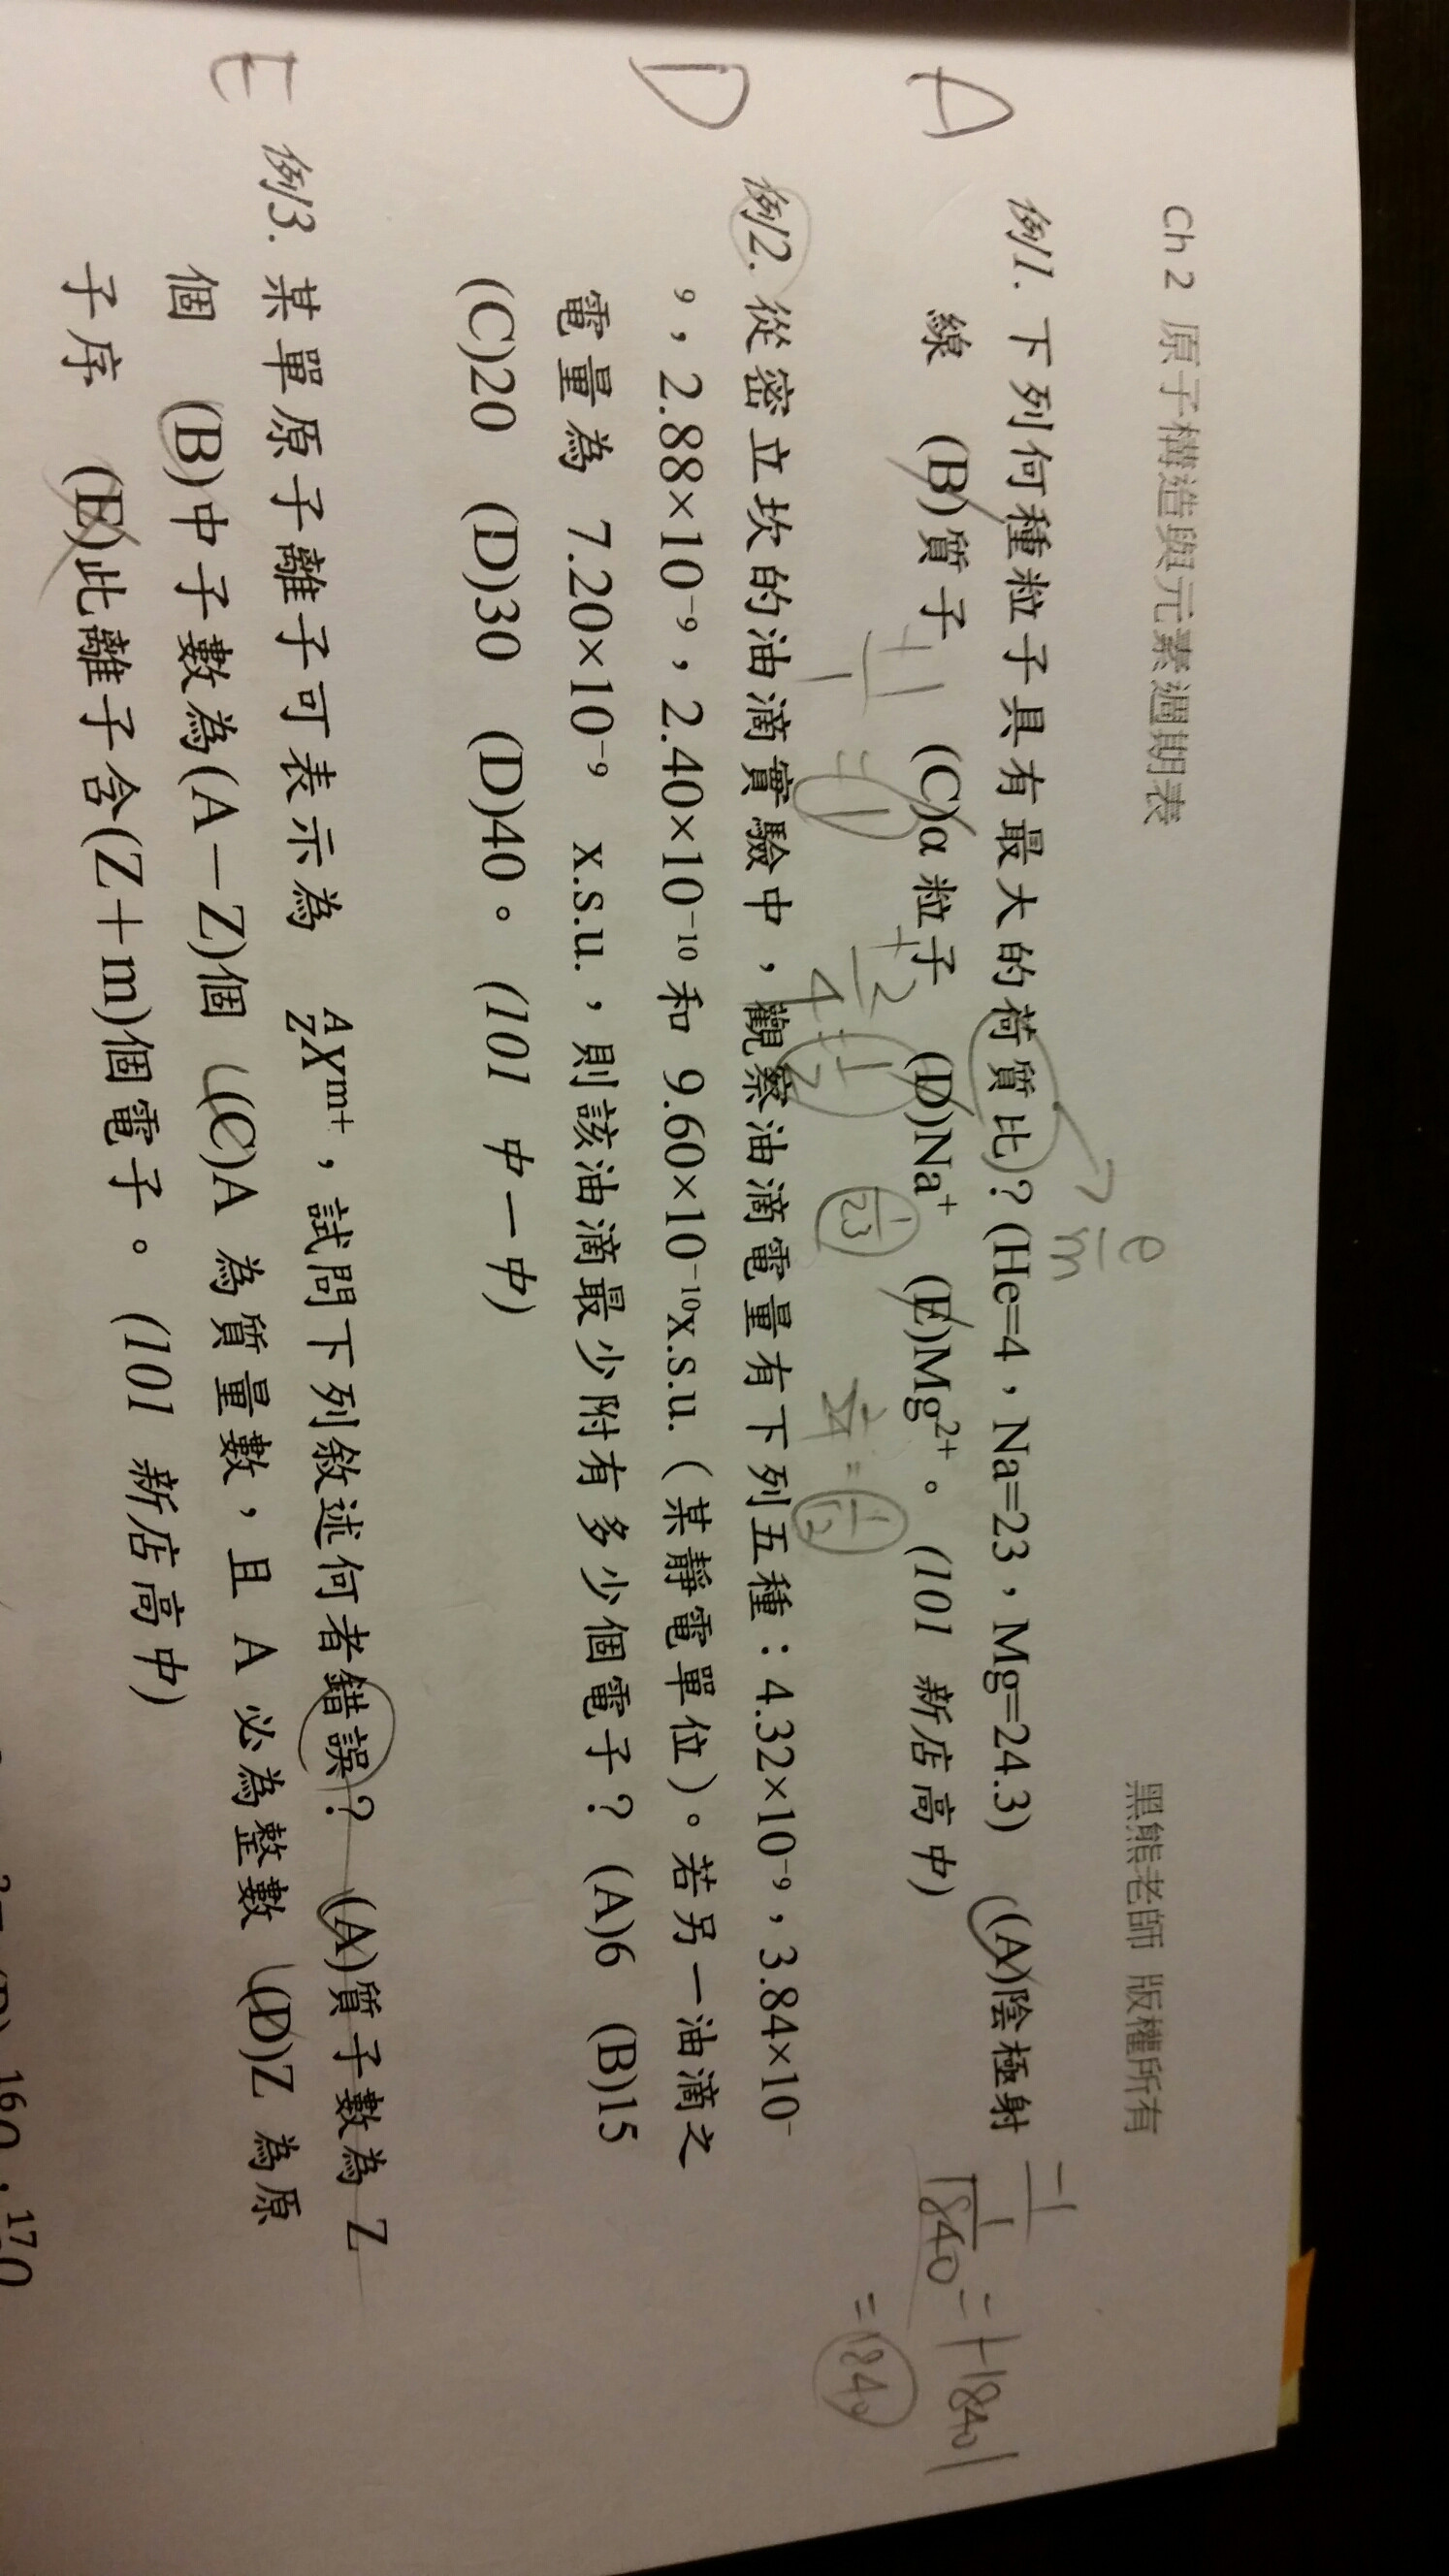 Ch 2 原子構造與元素週期表
黑熊老師 版權所有
e
m
A
例1. 下列何種粒子具有最大的荷質比? (He=4，Na=23，Mg=24.3) (A)陰極射
線 (B)質子 (C)α粒子 (D)Na⁺ (E)Mg²⁺。(101 新店高中)
-1
1
1840
= |-1840|
= 1840
+1
1
=1
+2
4
+1
2
1
23
2
24
= 1
12
D
例2. 從密立坎的油滴實驗中，觀察油滴電量有下列五種：4.32×10⁻⁹，3.84×10⁻
⁹，2.88×10⁻⁹，2.40×10⁻¹⁰ 和 9.60×10⁻¹⁰x.s.u.（某靜電單位）。若另一油滴之
電量為 7.20×10⁻⁹ x.s.u.，則該油滴最少附有多少個電子？ (A)6 (B)15
(C)20 (D)30 (D)40。(101 中一中)
E
例3. 某單原子離子可表示為 ᴬzXᵐ⁺，試問下列敘述何者錯誤？ (A)質子數為 Z
個 (B)中子數為(A－Z)個 (C)A 為質量數，且 A 必為整數 (D)Z 為原
子序 (E)此離子含(Z＋m)個電子。(101 新店高中)
¹⁶O，¹⁷O